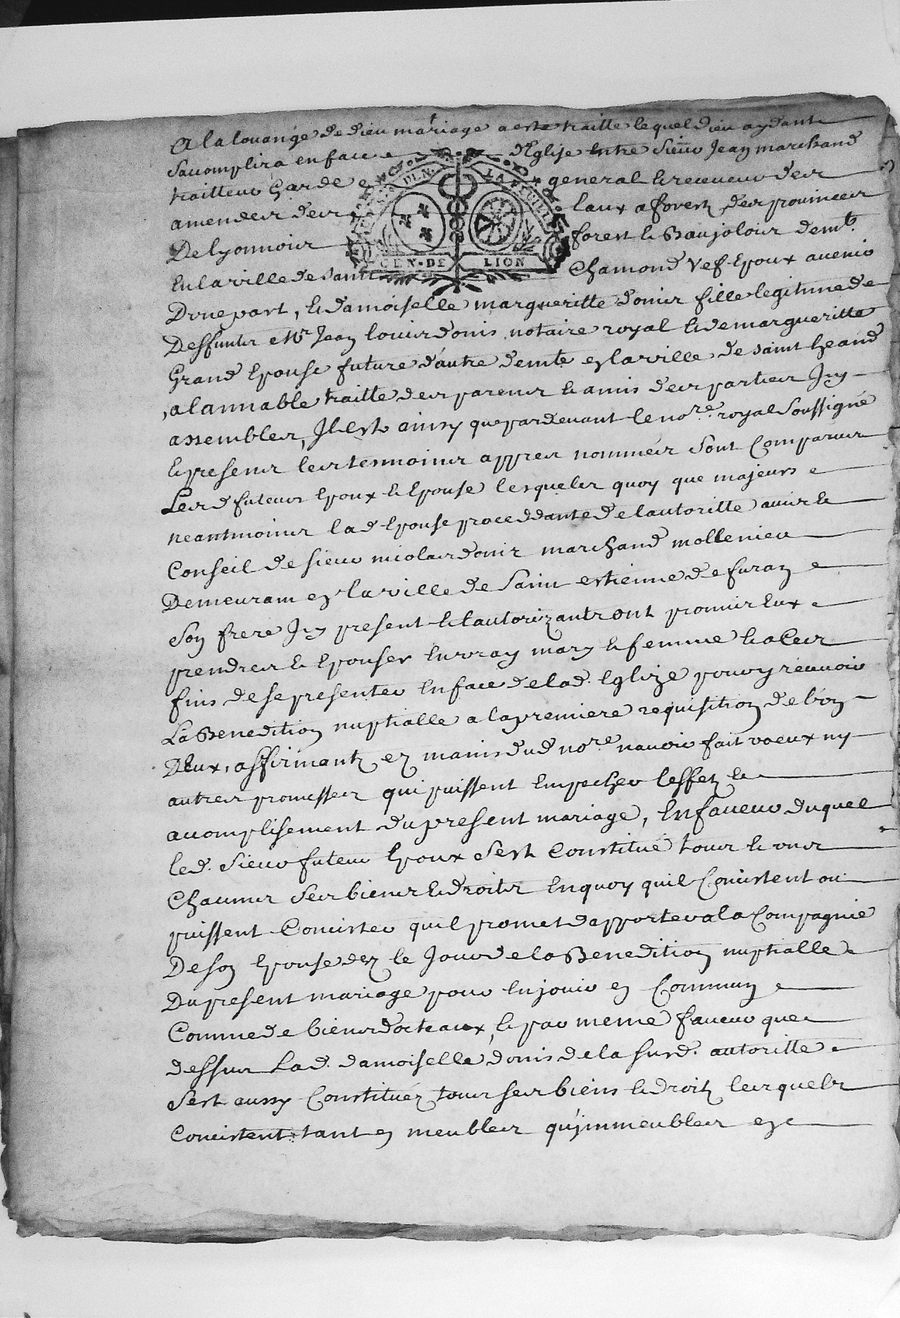 A la louange de dieu mariage a este traitte lequel dieu aydant
sacomplira en face d'Eglise Entre Sieur Jean marchand
trailleur Garde general & receveur des
amendes des Eaux & forest des provinces
De lyonnois forest & Baujolois demt
En la ville de Saint Chamond Vef Epoux avenir
D'une part, & damoiselle margueritte donis fille legitime de
Deffunts Mr Jean louis donis notaire royal & de margueritte
Grand Epouse future d'autre demte en la ville de Saint Chamd
, a lamiable traitte des parens & amis des parties Icy
assembles, Il est ainsy que pardevant le nore royal Soussigné
& presens les tesmoins appres nommés Sont Comparus
Lesd futeurs Epoux & Epouse lesquels quoy que majeurs
neantmoins lad Epouse proceddante de l'autoritte avis &
Conseil de sieur nicolas donis marchand mollenieur
Demeurant en la ville de Saint estienne de furan
Son frere Icy present & l'autorizant ont promis Eux
prendre & Epouser En vray mary & femme & a Ces
fins de se presenter En face de lad. Eglize pour y recevoir
La Benedition nuptialle a la premiere requisition de l'un
D'Eux, affirmant es mains dud nore navoir fait voeux ny
autres promesses qui puissent Empecher l'effet &
acomplisement du present mariage, En faveur duquel
led. Sieur futeur Epoux Sest Constitué tous & uns
Chacuns Ses biens & droits En quoy qu'il Concistent ou
puissent Concister qu'il promet d'apporter a la Compagnie
De son Epouse dez le Jour de la Benedition nuptialle
Du present mariage pour En jouir en Commun
Comme de biens doteaux, & par meme faveur que
dessus Lad. damoiselle donis de la susd. autoritte
Sest aussy Constituée tous ses biens & droits lesquels
Concistent tant en meubles qu'immeubles en
GEN. DE LION